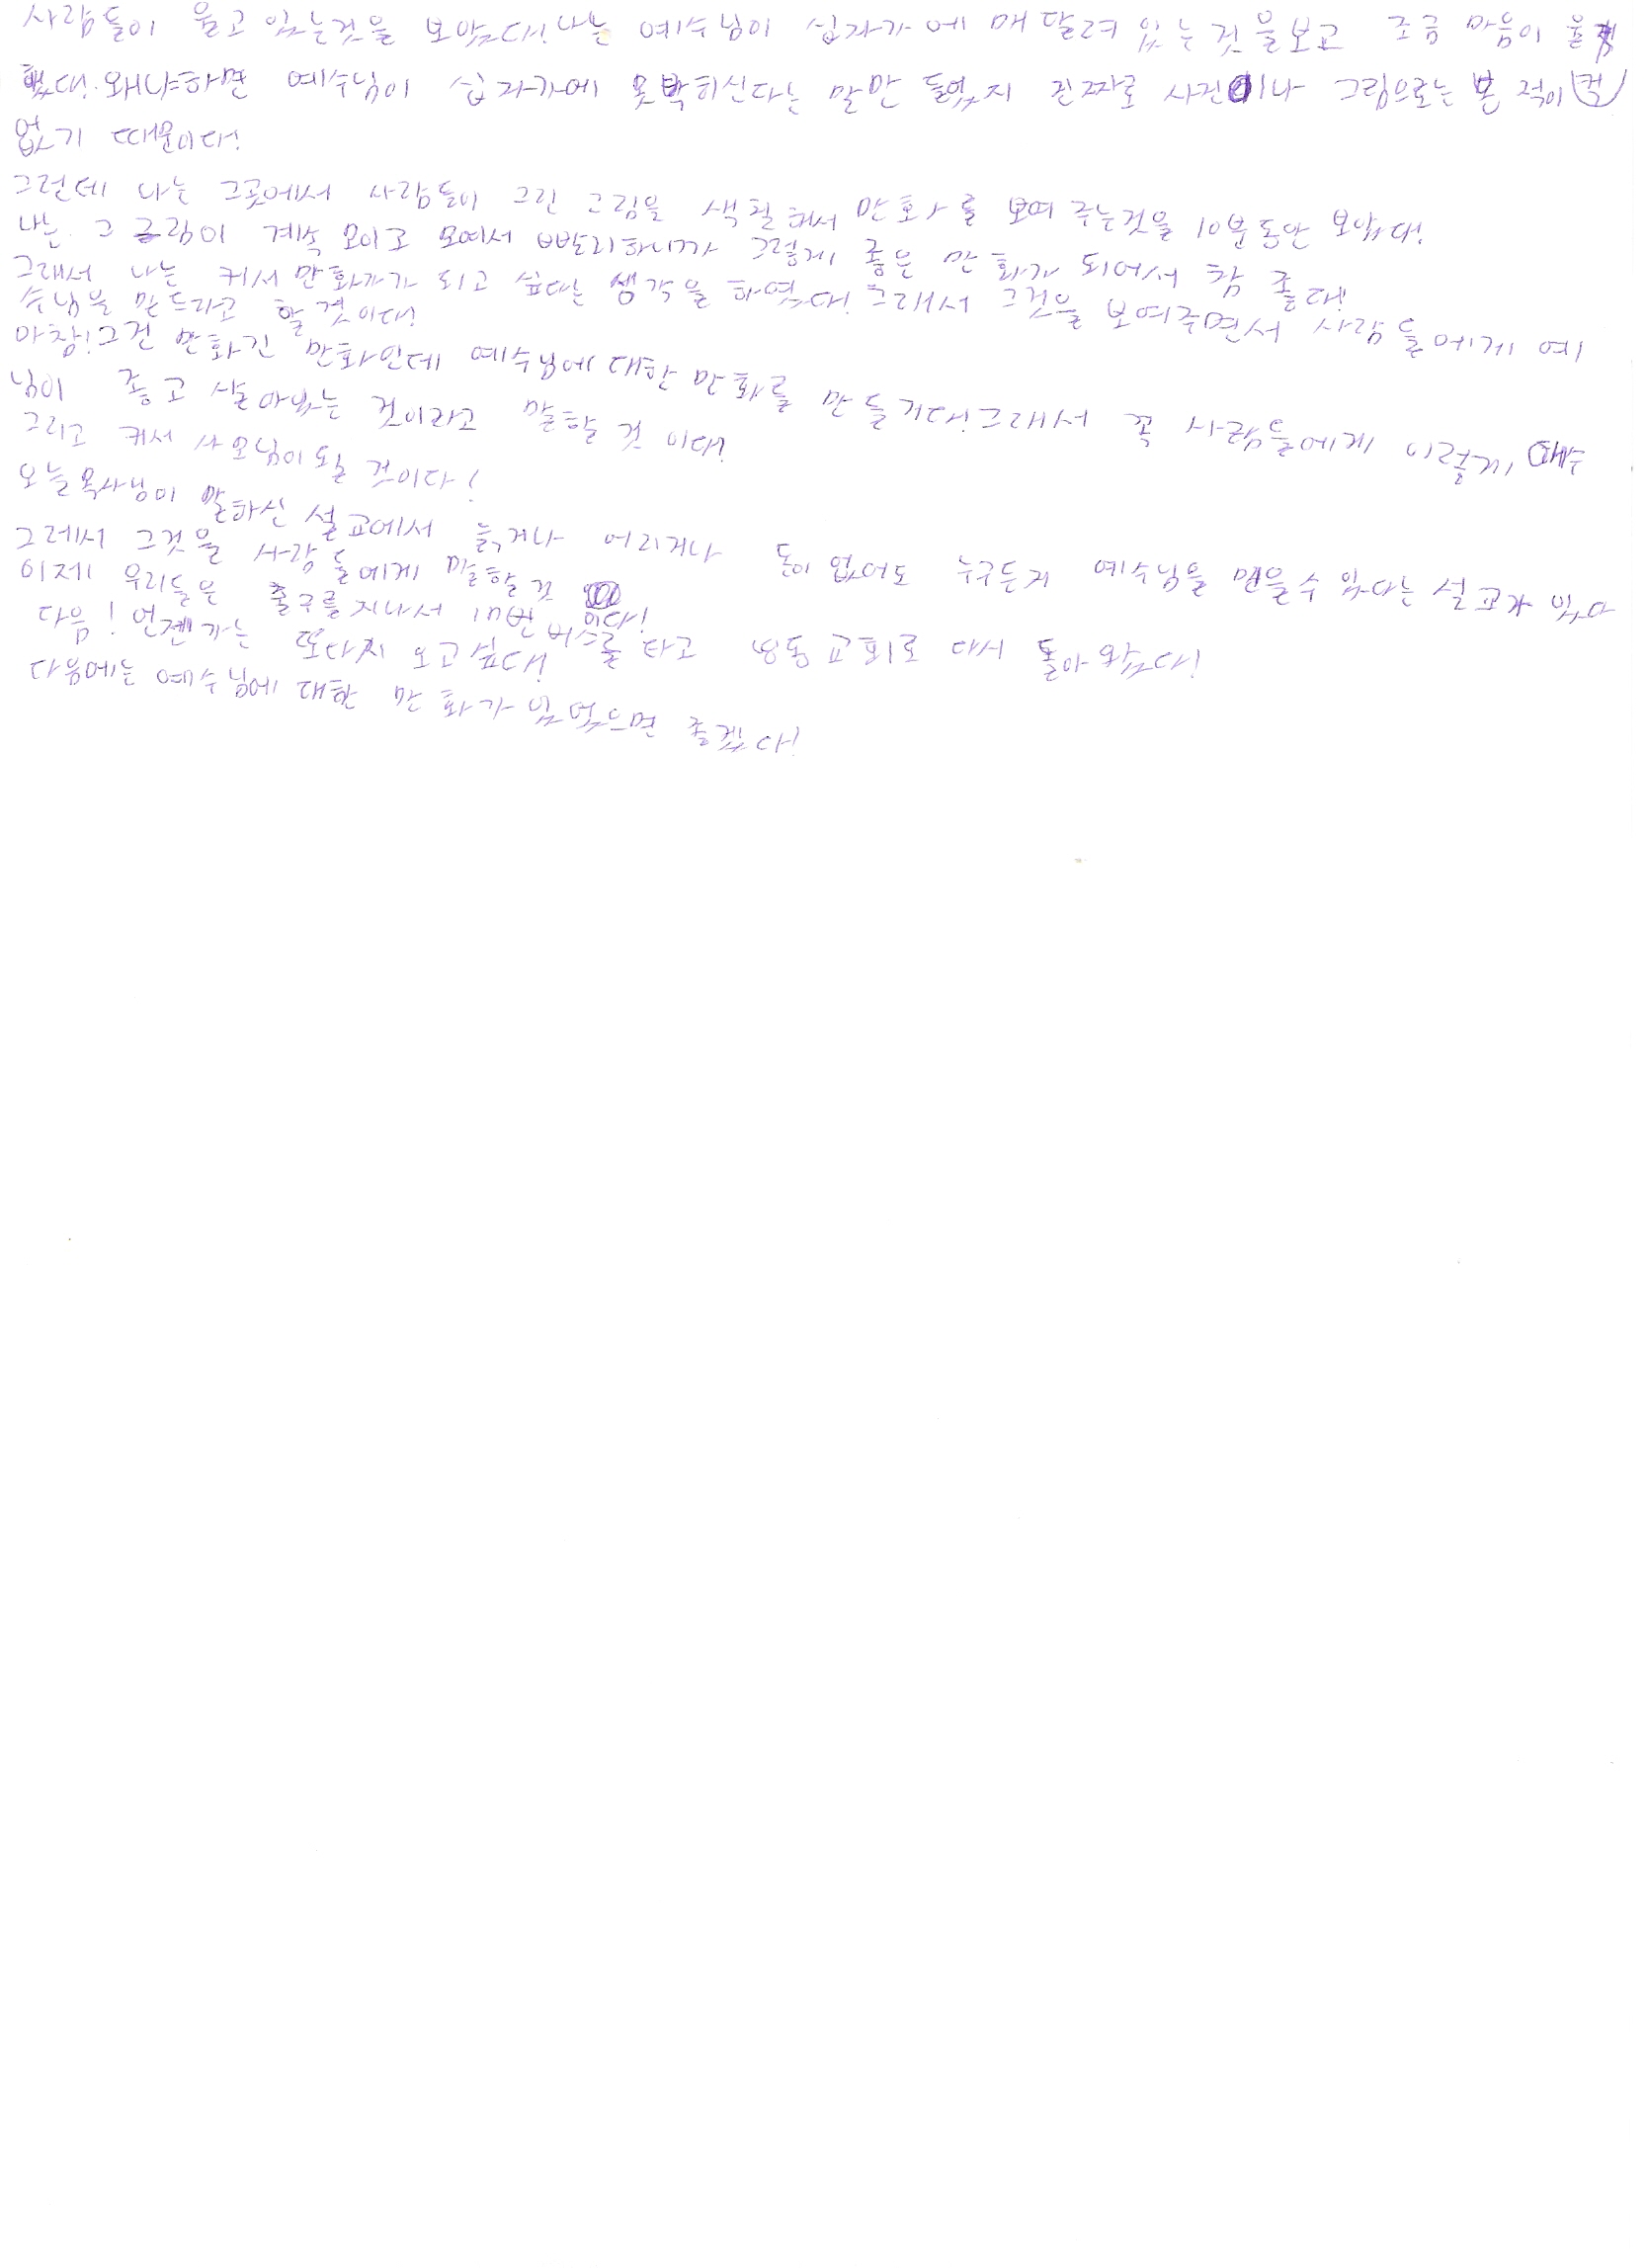 사람들이 울고 있는것을 보았다! 나는 예수님이 십자가에 매달려 있는것을보고 조금 마음이 울컥
했다. 왜냐하면 예수님이 십자가에 못박히신다는 말만 들었지 진짜로 사진이나 그림으로는 본 적이
없기 때문이다!
그런데 나는 그곳에서 사람들이 그린 그림을 색칠해서 만화를 보여주는것을 10분동안 보았다!
나는 그 그림이 계속 모이고 모여서 빨리하니까 그렇게 좋은 만화가 되어서 참 좋다!
그래서 나는 커서 만화가가 되고 싶다는 생각을 하였다! 그래서 그것을 보여주면서 사람들에게 예
수님을 만드라고 할것이다!
아참! 그건 만화긴 만화인데 예수님에 대한 만화를 만들거다! 그래서 꼭 사람들에게 이렇게 예수
님이 좋고 살아있는 것이라고 말할 것 이다!
그리고 커서 사모님이 될 것이다!
오늘 목사님이 말하신 설교에서 늙거나 어리거나 돈이 없어도 누구든지 예수님을 믿을수 있다는 설교가 있다
그레서 그것을 사람들에게 말할것 이다!
이제 우리들은 출구를 지나서 버스를 타고 교회로 다시 돌아왔다!
다음! 언젠가는 또다시 오고싶다!
다음에는 예수님에 대한 만화가 있었으면 좋겠다!